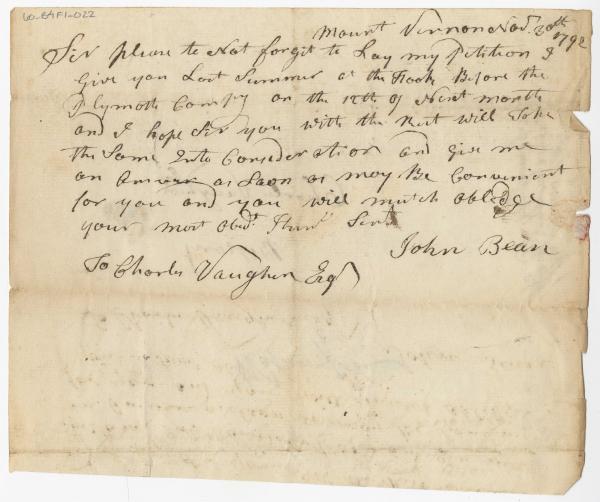 60-64F1-022
Mount Vernon Nov.r 20th 1792
Sir please to Not forgit to Lay my Petition I
Give you Last Summer at the Hook Before the
Plymoth Compy on the 12th of Next month
and I hope Sir you with the Rest will Take
the Same Into Consideration and Give me
an Answer as Soon as may Be Convenient
for you and you will mutch obledge
your most Obedt Humb Servt
John Bean
To Charles Vaughen Esqr